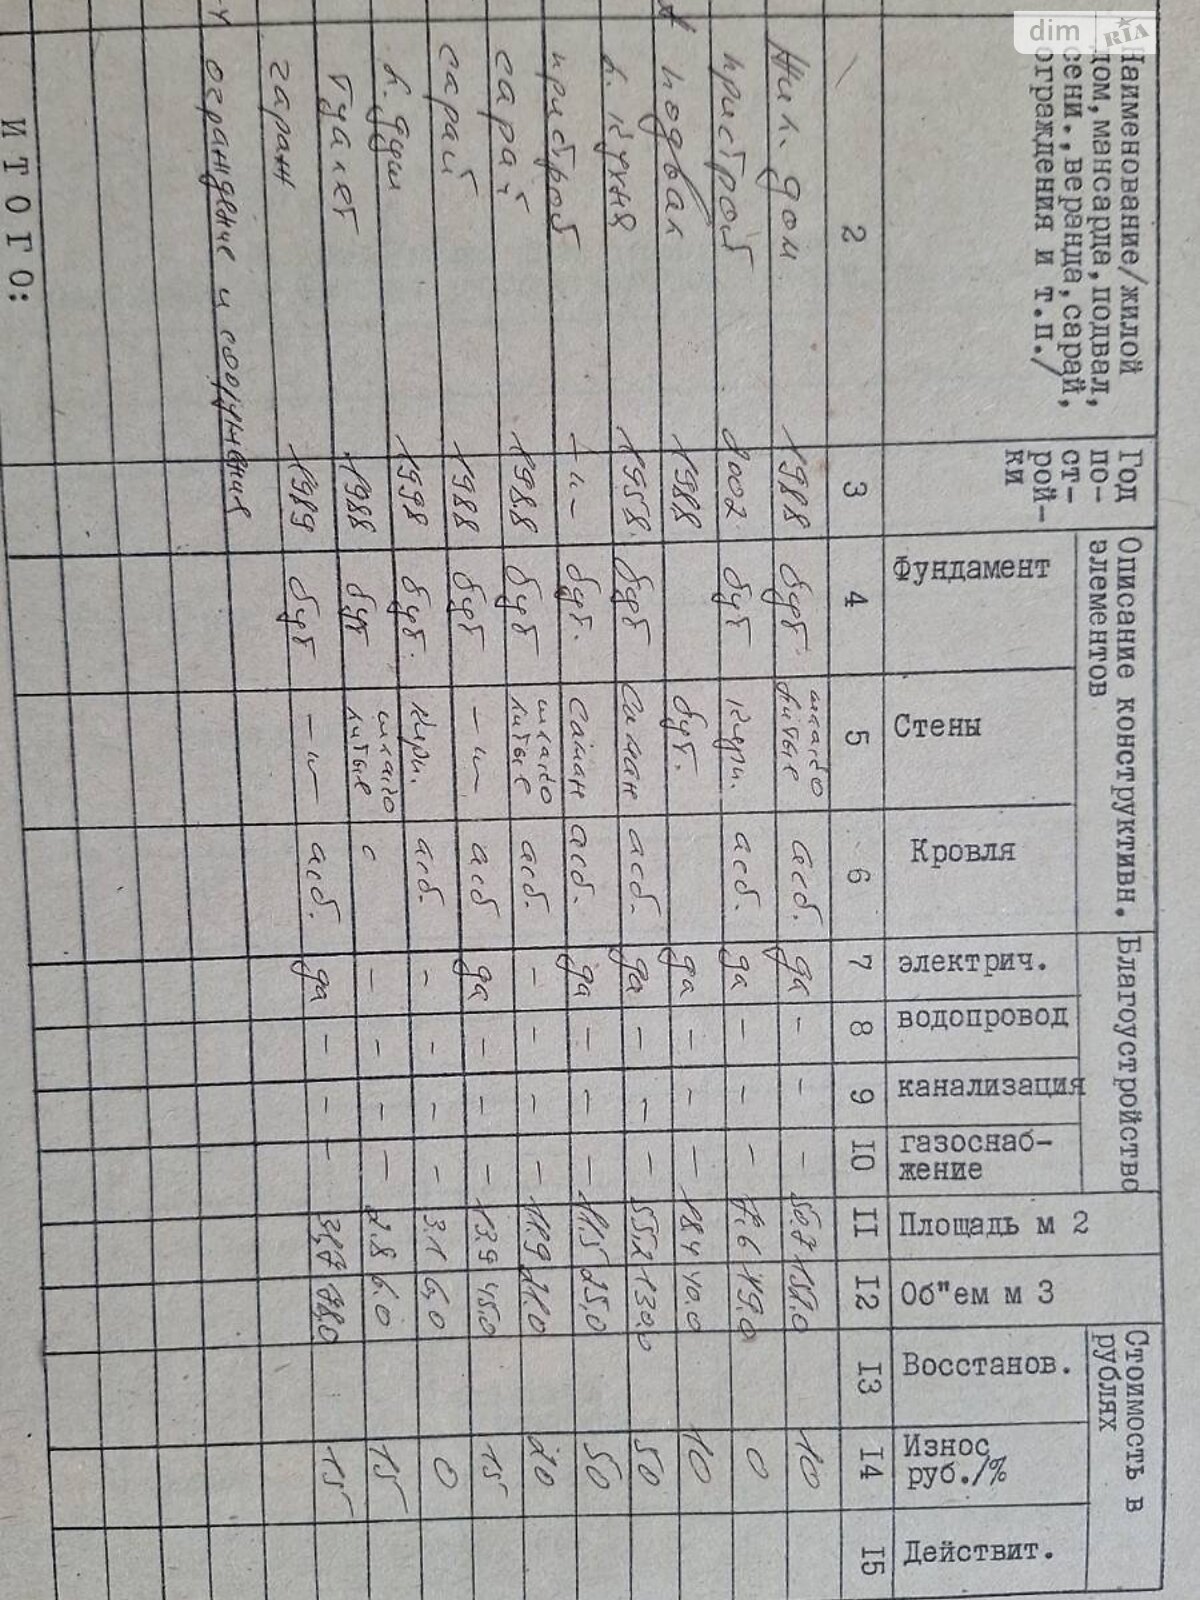 dim RIA
Наименование/жилой
дом, мансарда, подвал,
сени., веранда, сарай,
ограждения и т.п./
Год
по-
ст-
рой-
ки
Описание конструктивн.
элементов
Благоустройство
Стоимость в
рублях
Фундамент
Стены
Кровля
электрич.
водопровод
канализация
газоснаб-
жение
Площадь м 2
Об"ем м 3
Восстанов.
Износ
руб./%
Действит.
2 3 4 5 6 7 8 9 I0 II I2 I3 I4 I5
Жил. дом 1988 бут. шлако литые асб. да - - - 50.7 152.0 10
пристрой 2002 бут кирп. асб. да - - - 7.6 19.0 0
подвал 1988 бут. да - - - 18.4 40.0 10
л. кухня 1958. бут саман асб. да - - - 55.2 130.0 50
пристрой -"- бут. саман асб. да - - - 11.5 25.0 50
сарай 1988 бут шлако литые асб. - - - - 11.9 21.0 20
сарай 1988 бут -"- асб да - - - 13.9 45.0 15
л. душ 1998 бут. кирп. асб. - - - - 3.1 6,0 0
туалет 1988 бут шлако литые - - - - 2.8 6.0 15
гараж 1989 бут -"- асб. да - - - 31,7 78,0 15
ограждение и сооружения
И Т О Г О: